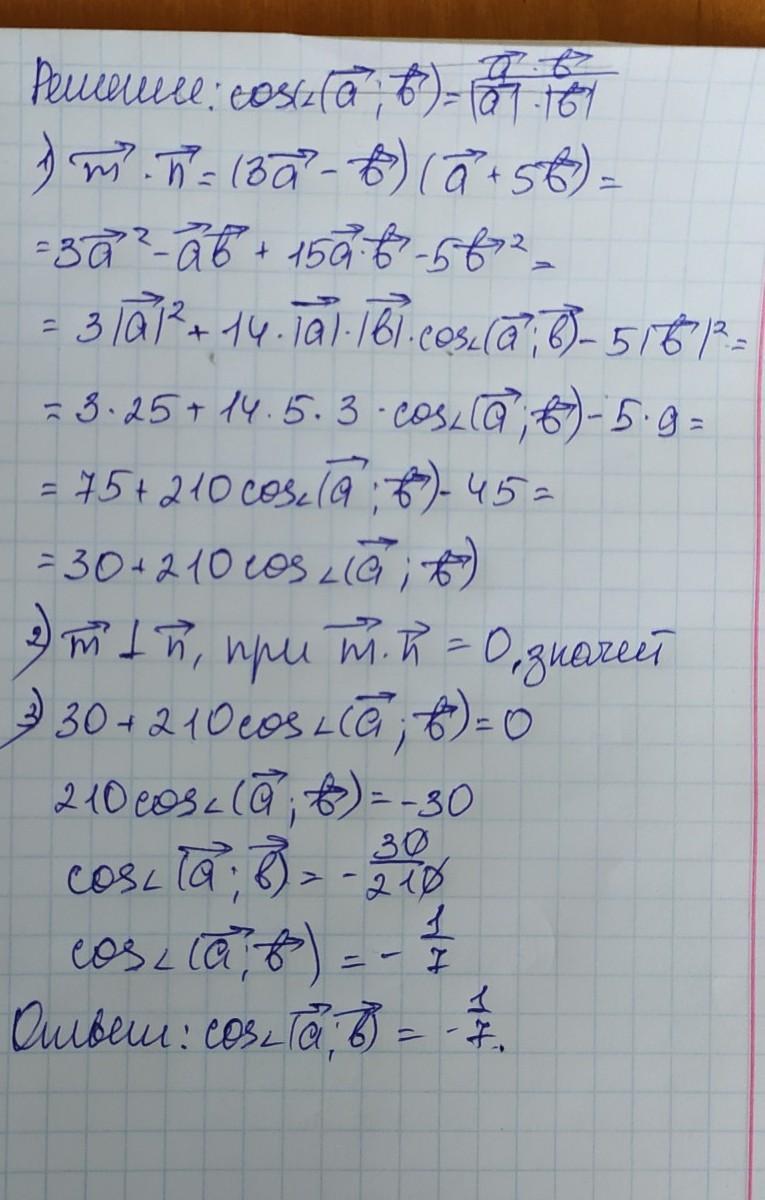 Решение: cos∠(a⃗ ; b⃗) = (a⃗ · b⃗)/(|a⃗| · |b⃗|)
1) m⃗ · n⃗ = (3a⃗ - b⃗)(a⃗ + 5b⃗) =
= 3a⃗² - a⃗b⃗ + 15a⃗·b⃗ - 5b⃗² =
= 3|a⃗|² + 14·|a⃗|·|b⃗|·cos∠(a⃗ ; b⃗) - 5|b⃗|² =
= 3·25 + 14·5·3·cos∠(a⃗ ; b⃗) - 5·9 =
= 75 + 210cos∠(a⃗ ; b⃗) - 45 =
= 30 + 210cos∠(a⃗ ; b⃗)
2) m⃗ ⊥ n⃗, при m⃗·n⃗ = 0, значит
3) 30 + 210cos∠(a⃗ ; b⃗) = 0
210cos∠(a⃗ ; b⃗) = -30
cos∠(a⃗ ; b⃗) = -30/210
cos∠(a⃗ ; b⃗) = -1/7
Ответ: cos∠(a⃗ ; b⃗) = -1/7.